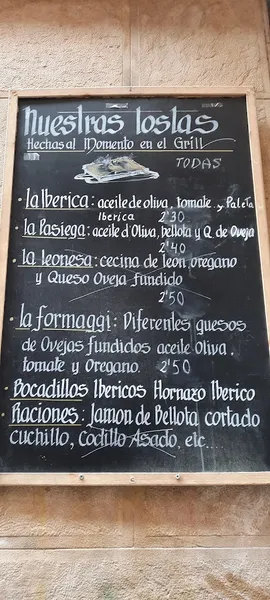 Nuestras tostas
Hechas al Momento en el Grill
TODAS
· la Iberica: aceite de oliva, tomate y Paleta
Iberica 2'30
· la Pasiega: aceite d'Oliva, bellota y Q de Oveja
2'40
· la leonesa: cecina de león, oregano
y Queso Oveja fundido
2'50
· la formaggi: Diferentes quesos
de Ovejas fundidos aceite Oliva,
tomate y Oregano. 2'50
· Bocadillos Ibericos Hornazo Iberico
· Raciones: Jamon de Bellota cortado
cuchillo, Codillo Asado, etc....